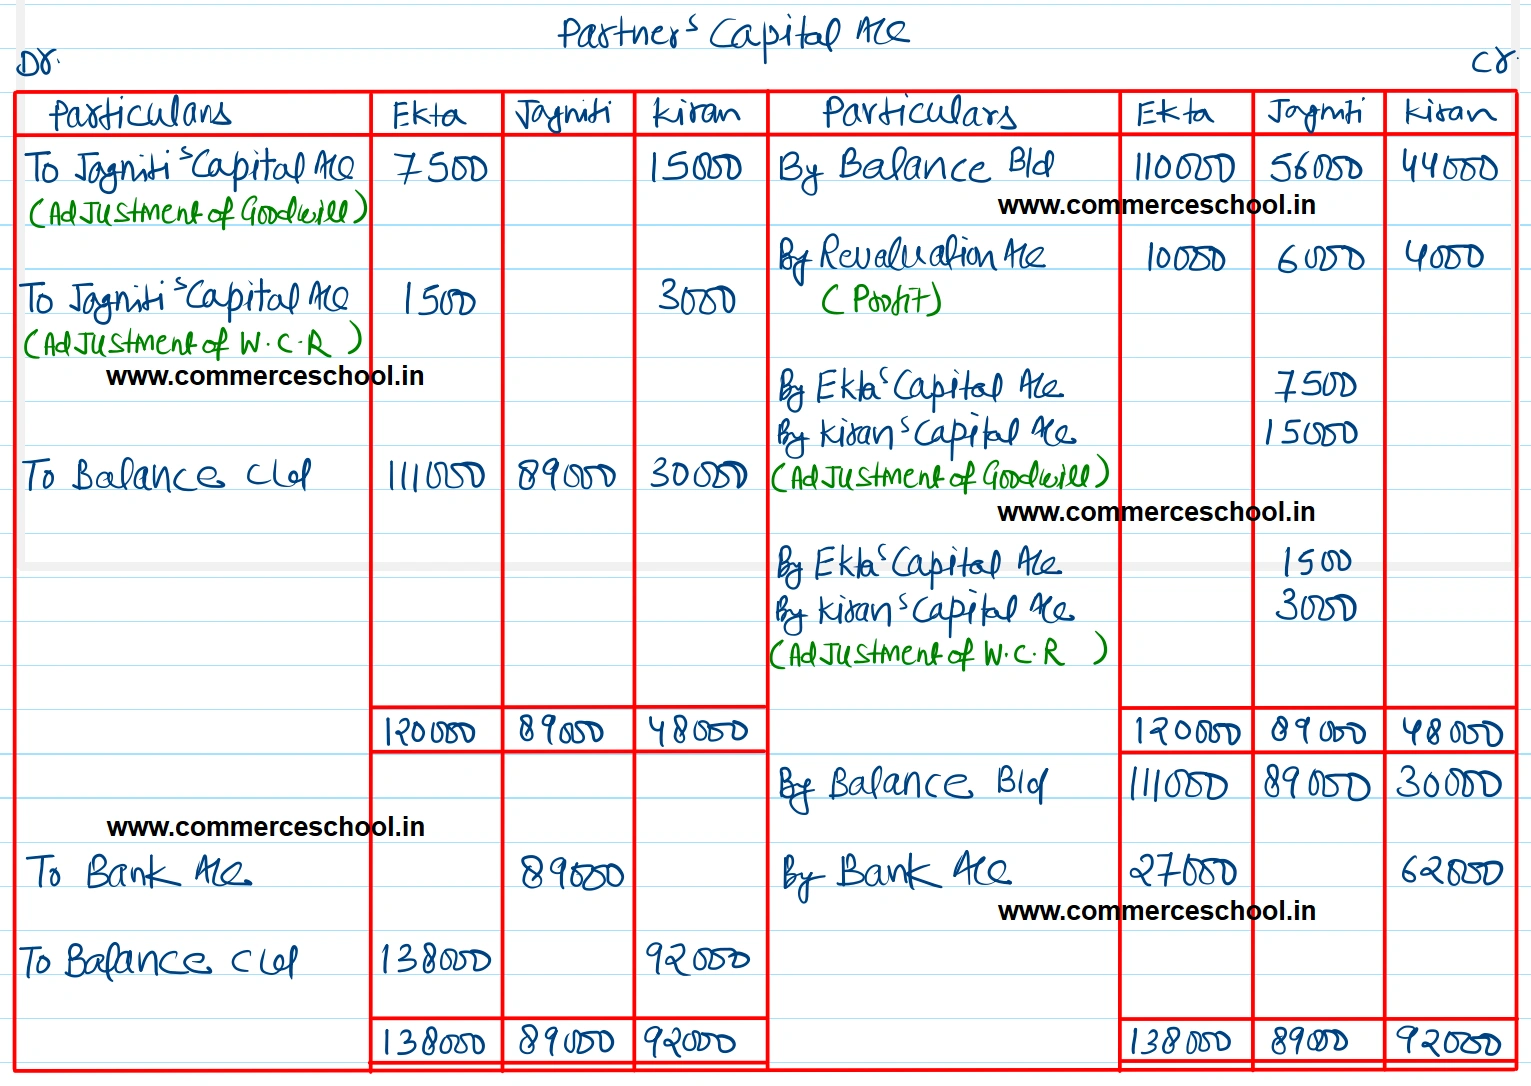 Partner's Capital A/c
Dr.
Cr.
Particulars Ekta Jagriti Kiran Particulars Ekta Jagriti Kiran
To Jagriti's Capital A/c 7500 15000 By Balance B/d 110000 56000 44000
(Adjustment of Goodwill) www.commerceschool.in
By Revaluation A/c 10000 6000 4000
To Jagriti's Capital A/c 1500 3000 (Profit)
(Adjustment of W.C.R)
www.commerceschool.in
By Ekta's Capital A/c 7500
By Kiran's Capital A/c 15000
To Balance C/d 111000 89000 30000 (Adjustment of Goodwill)
www.commerceschool.in
By Ekta's Capital A/c 1500
By Kiran's Capital A/c 3000
(Adjustment of W.C.R)
120000 89000 48000 120000 89000 48000
By Balance B/d 111000 89000 30000
www.commerceschool.in
To Bank A/c 89000 By Bank A/c 27000 62000
www.commerceschool.in
To Balance C/d 138000 92000
138000 89000 92000 138000 89000 92000